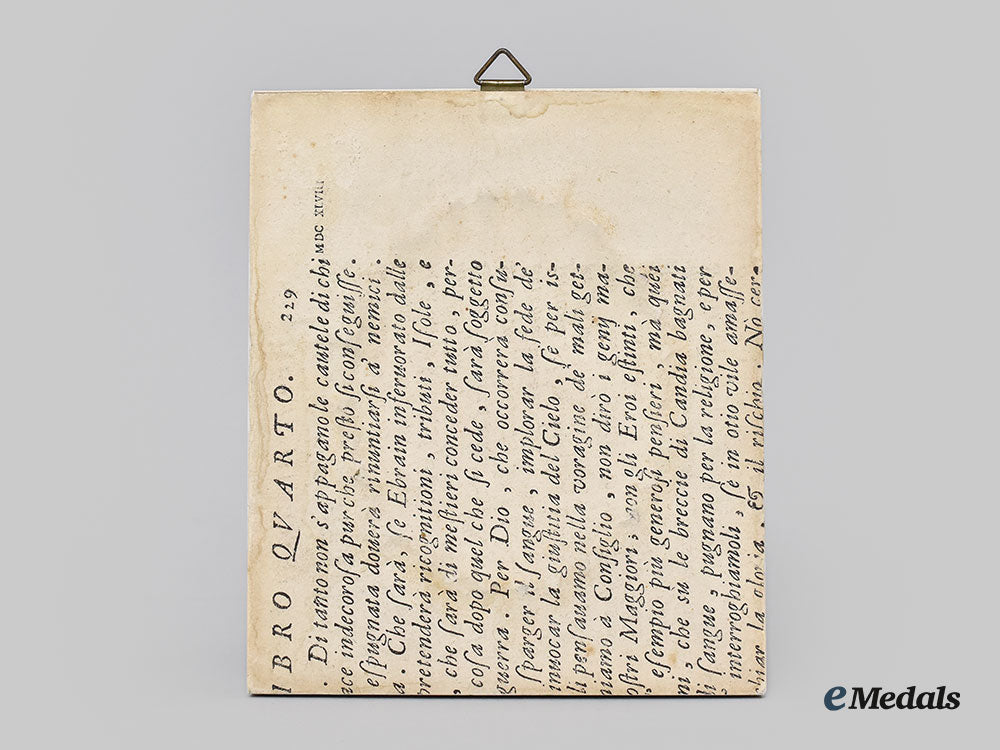 IBRO QVARTO. 229
. Di tanto non s'appagamo le cautele di chi MDC XLVIII
ace indecorosa pur che presto si conseguisse.
espugnata douerà rinuntiarsi a' nemici.
a. Che sarà, se Ebrain inferuorato dalle
pretenderà ricognitioni, tributi, Isole, e
, che sarà di mestieri conceder tutto, per-
cosa dopo quel che si cede, sarà soggetto
guerra. Per Dio, che occorrerà consu-
sparger il sangue, implorar la fede de'
inuocar la giustitia del Cielo, se per is-
li pensauamo nella voragine de' mali get-
niamo à Consiglio, non dirò i genij ma-
ostri Maggiori; non gli Eroi estinti, che
, esempio più generosi pensieri, ma quei
ni, che su le breccie di Candia bagnati
li sangue, pugnano per la religione, e per
interroghiamoli, se in otio vile amasse-
hiar la gloria, & il rischio. No cer-
eMedals